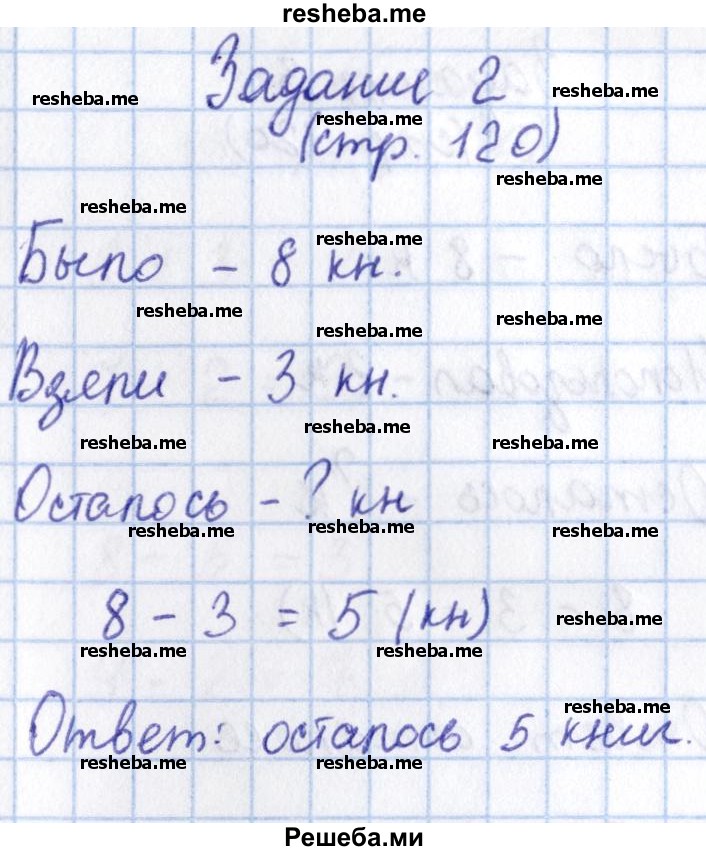 resheba.me
Задание 2
resheba.me resheba.me
resheba.me
(стр. 120)
resheba.me
resheba.me
resheba.me
Было - 8 кн.
resheba.me resheba.me
resheba.me
Взяли - 3 кн.
resheba.me
resheba.me resheba.me
Осталось - ? кн
resheba.me resheba.me resheba.me
8 - 3 = 5 (кн)
resheba.me
resheba.me resheba.me
resheba.me
Ответ: осталось 5 книг.
resheba.me resheba.me
Решеба.ми